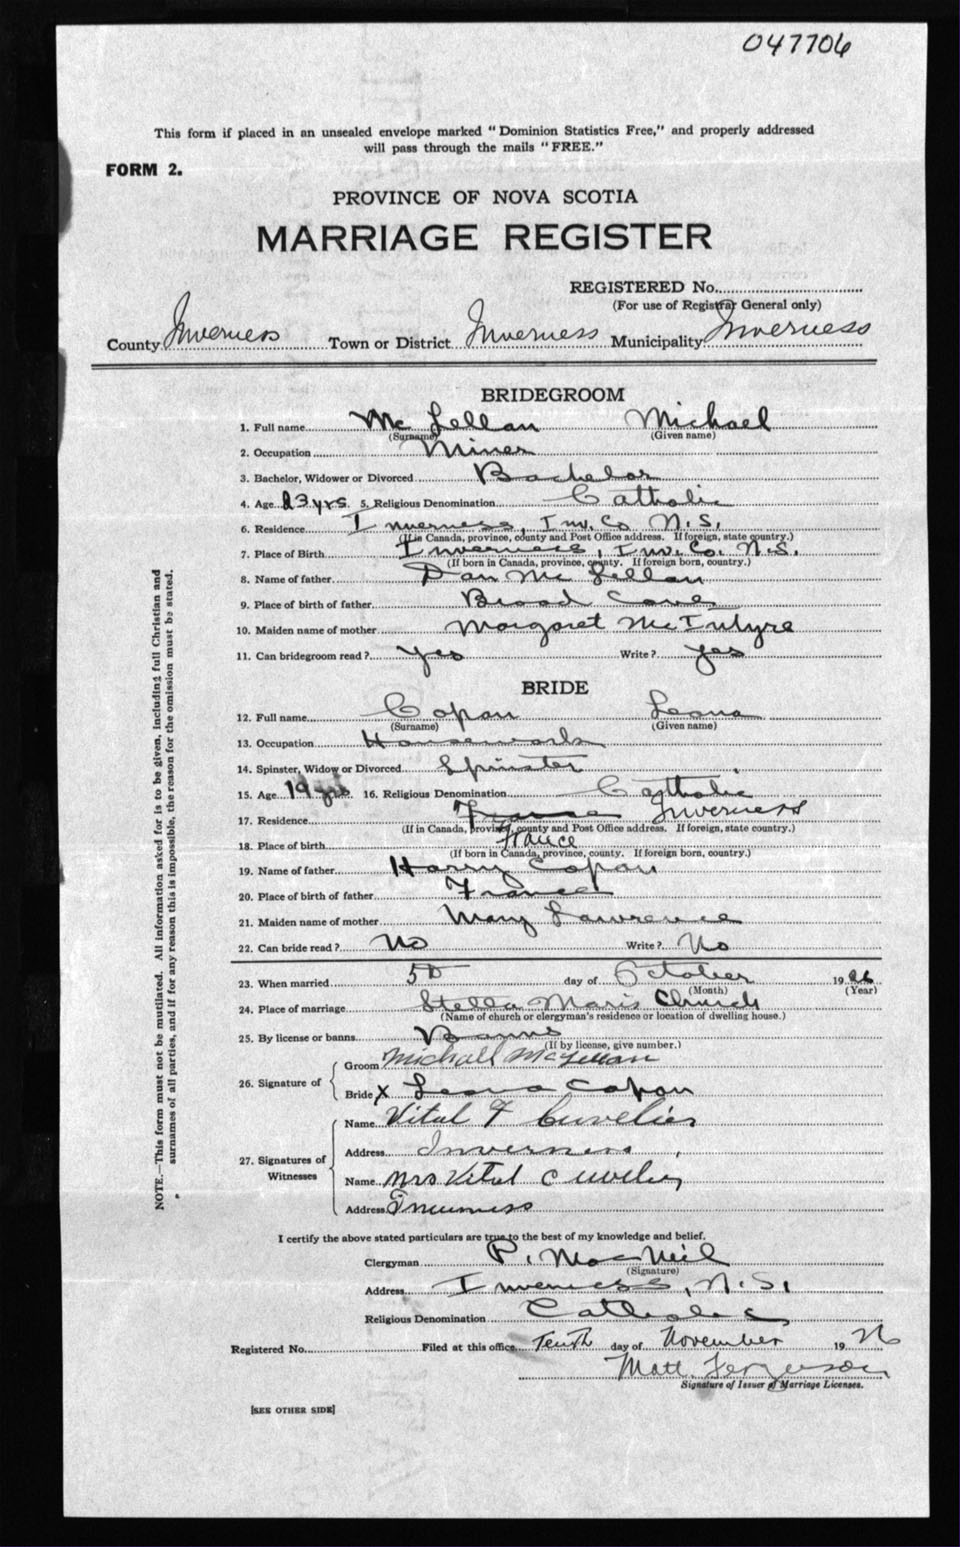 047706
This form if placed in an unsealed envelope marked "Dominion Statistics Free," and properly addressed
will pass through the mails "FREE."
FORM 2.
PROVINCE OF NOVA SCOTIA
MARRIAGE REGISTER
REGISTERED No.
(For use of Registrar General only)
County Inverness Town or District Inverness Municipality Inverness
BRIDEGROOM
1. Full name Mc Lellan Michael
(Surname) (Given name)
2. Occupation Miner
3. Bachelor, Widower or Divorced Bachelor
4. Age 23 yrs. 5. Religious Denomination Catholic
6. Residence Inverness, Inv. Co N.S.
(If in Canada, province, county and Post Office address. If foreign, state country.)
7. Place of Birth Inverness, Inv. Co. N.S.
(If born in Canada, province, county. If foreign born, country.)
8. Name of father Dan Mc Lellan
9. Place of birth of father Broad Cove
10. Maiden name of mother Margaret McIntyre
11. Can bridegroom read? yes Write? yes
BRIDE
12. Full name Copan Leona
(Surname) (Given name)
13. Occupation Housework
14. Spinster, Widow or Divorced Spinster
15. Age 19 yrs 16. Religious Denomination Catholic
17. Residence France Inverness
(If in Canada, province, county and Post Office address. If foreign, state country.)
18. Place of birth France
(If born in Canada, province, county. If foreign born, country.)
19. Name of father Harry Copan
20. Place of birth of father France
21. Maiden name of mother Mary Lawrence
22. Can bride read? No Write? No
23. When married 5th day of October 1926
(Month) (Year)
24. Place of marriage Stella Maris Church
(Name of church or clergyman's residence or location of dwelling house.)
25. By license or banns Banns
(If by license, give number.)
26. Signature of
Groom Michael McLellan
Bride X Leona Copan
27. Signatures of Witnesses
Name Vital F Cuvelier
Address Inverness
Name Mrs Vital Cuvelier
Address Inverness
I certify the above stated particulars are true to the best of my knowledge and belief.
Clergyman P. MacNeil
(Signature)
Address Inverness, N.S.
Religious Denomination Catholic
Registered No. Filed at this office Tenth day of November 1926
Matt Ferguson
Signature of Issuer of Marriage Licenses.
[SEE OTHER SIDE]
NOTE.—This form must not be mutilated. All information asked for is to be given, including full Christian and
surnames of all parties, and if for any reason this is impossible, the reason for the omission must be stated.